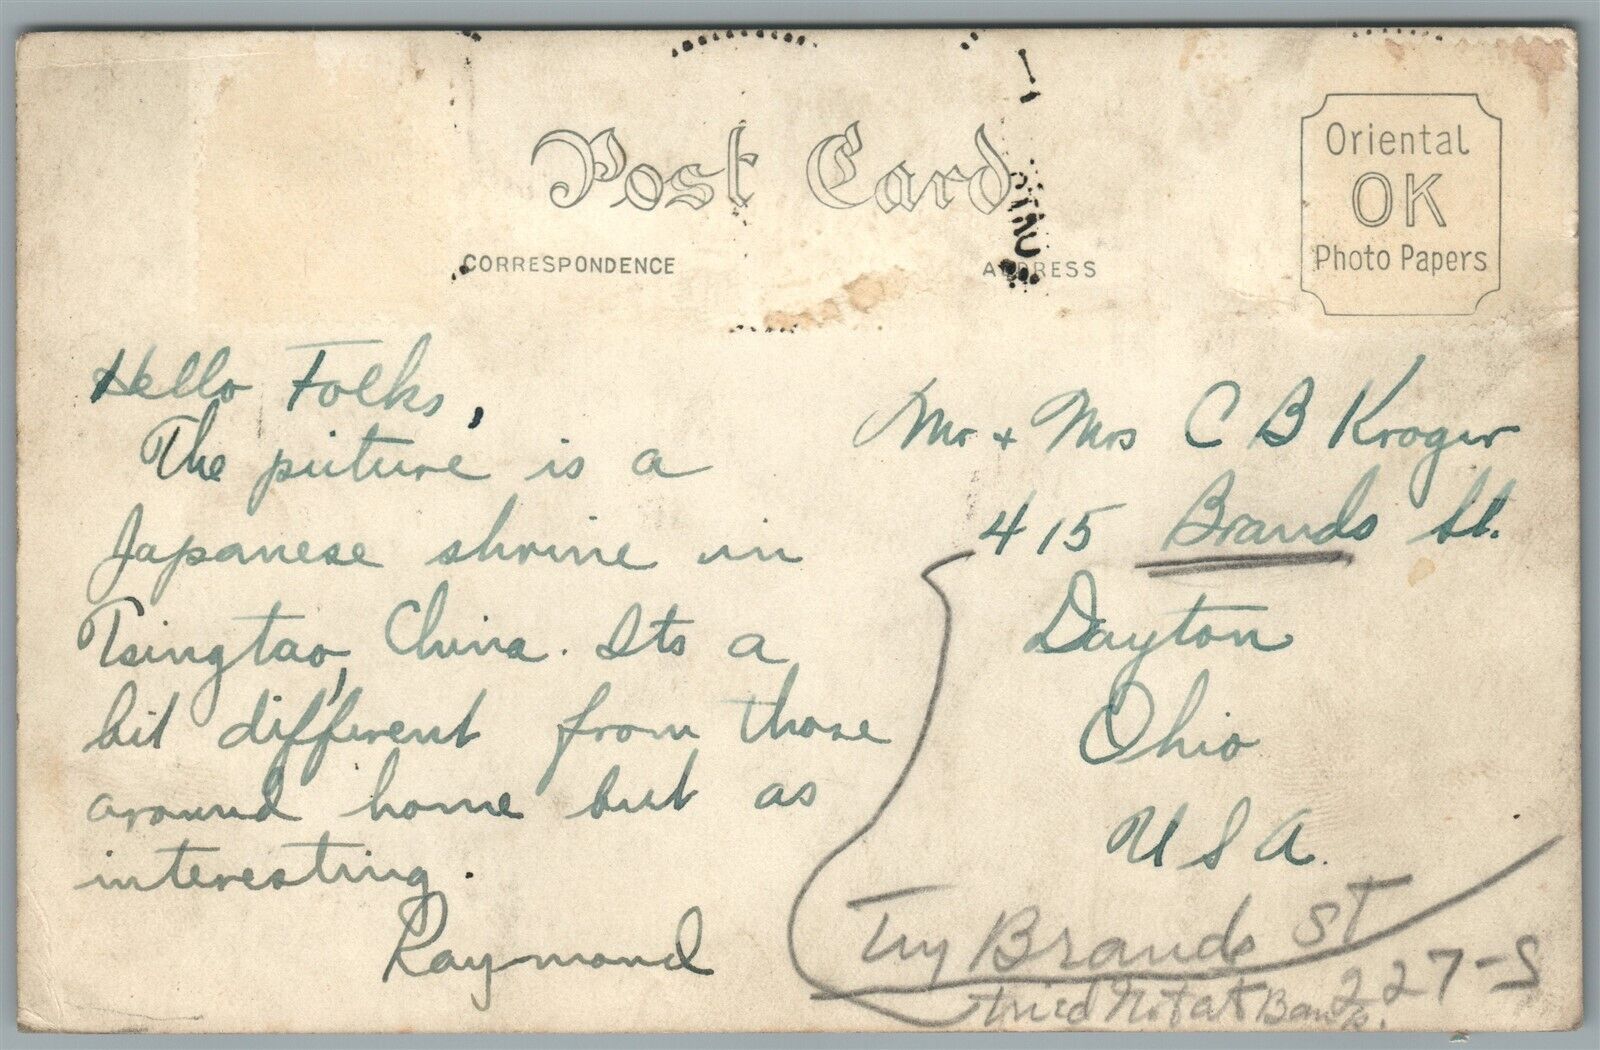 Post Card
CORRESPONDENCE
ADDRESS
Oriental
OK
Photo Papers
Hello Folks,
The picture is a
Japanese shrine in
Tsingtao, China. Its a
bit different from those
around home but as
interesting.
Raymond
Mr + Mrs C B Kroger
415 Brands St.
Dayton
Ohio
U S A.
Try Brands St
227-S
tried Not at